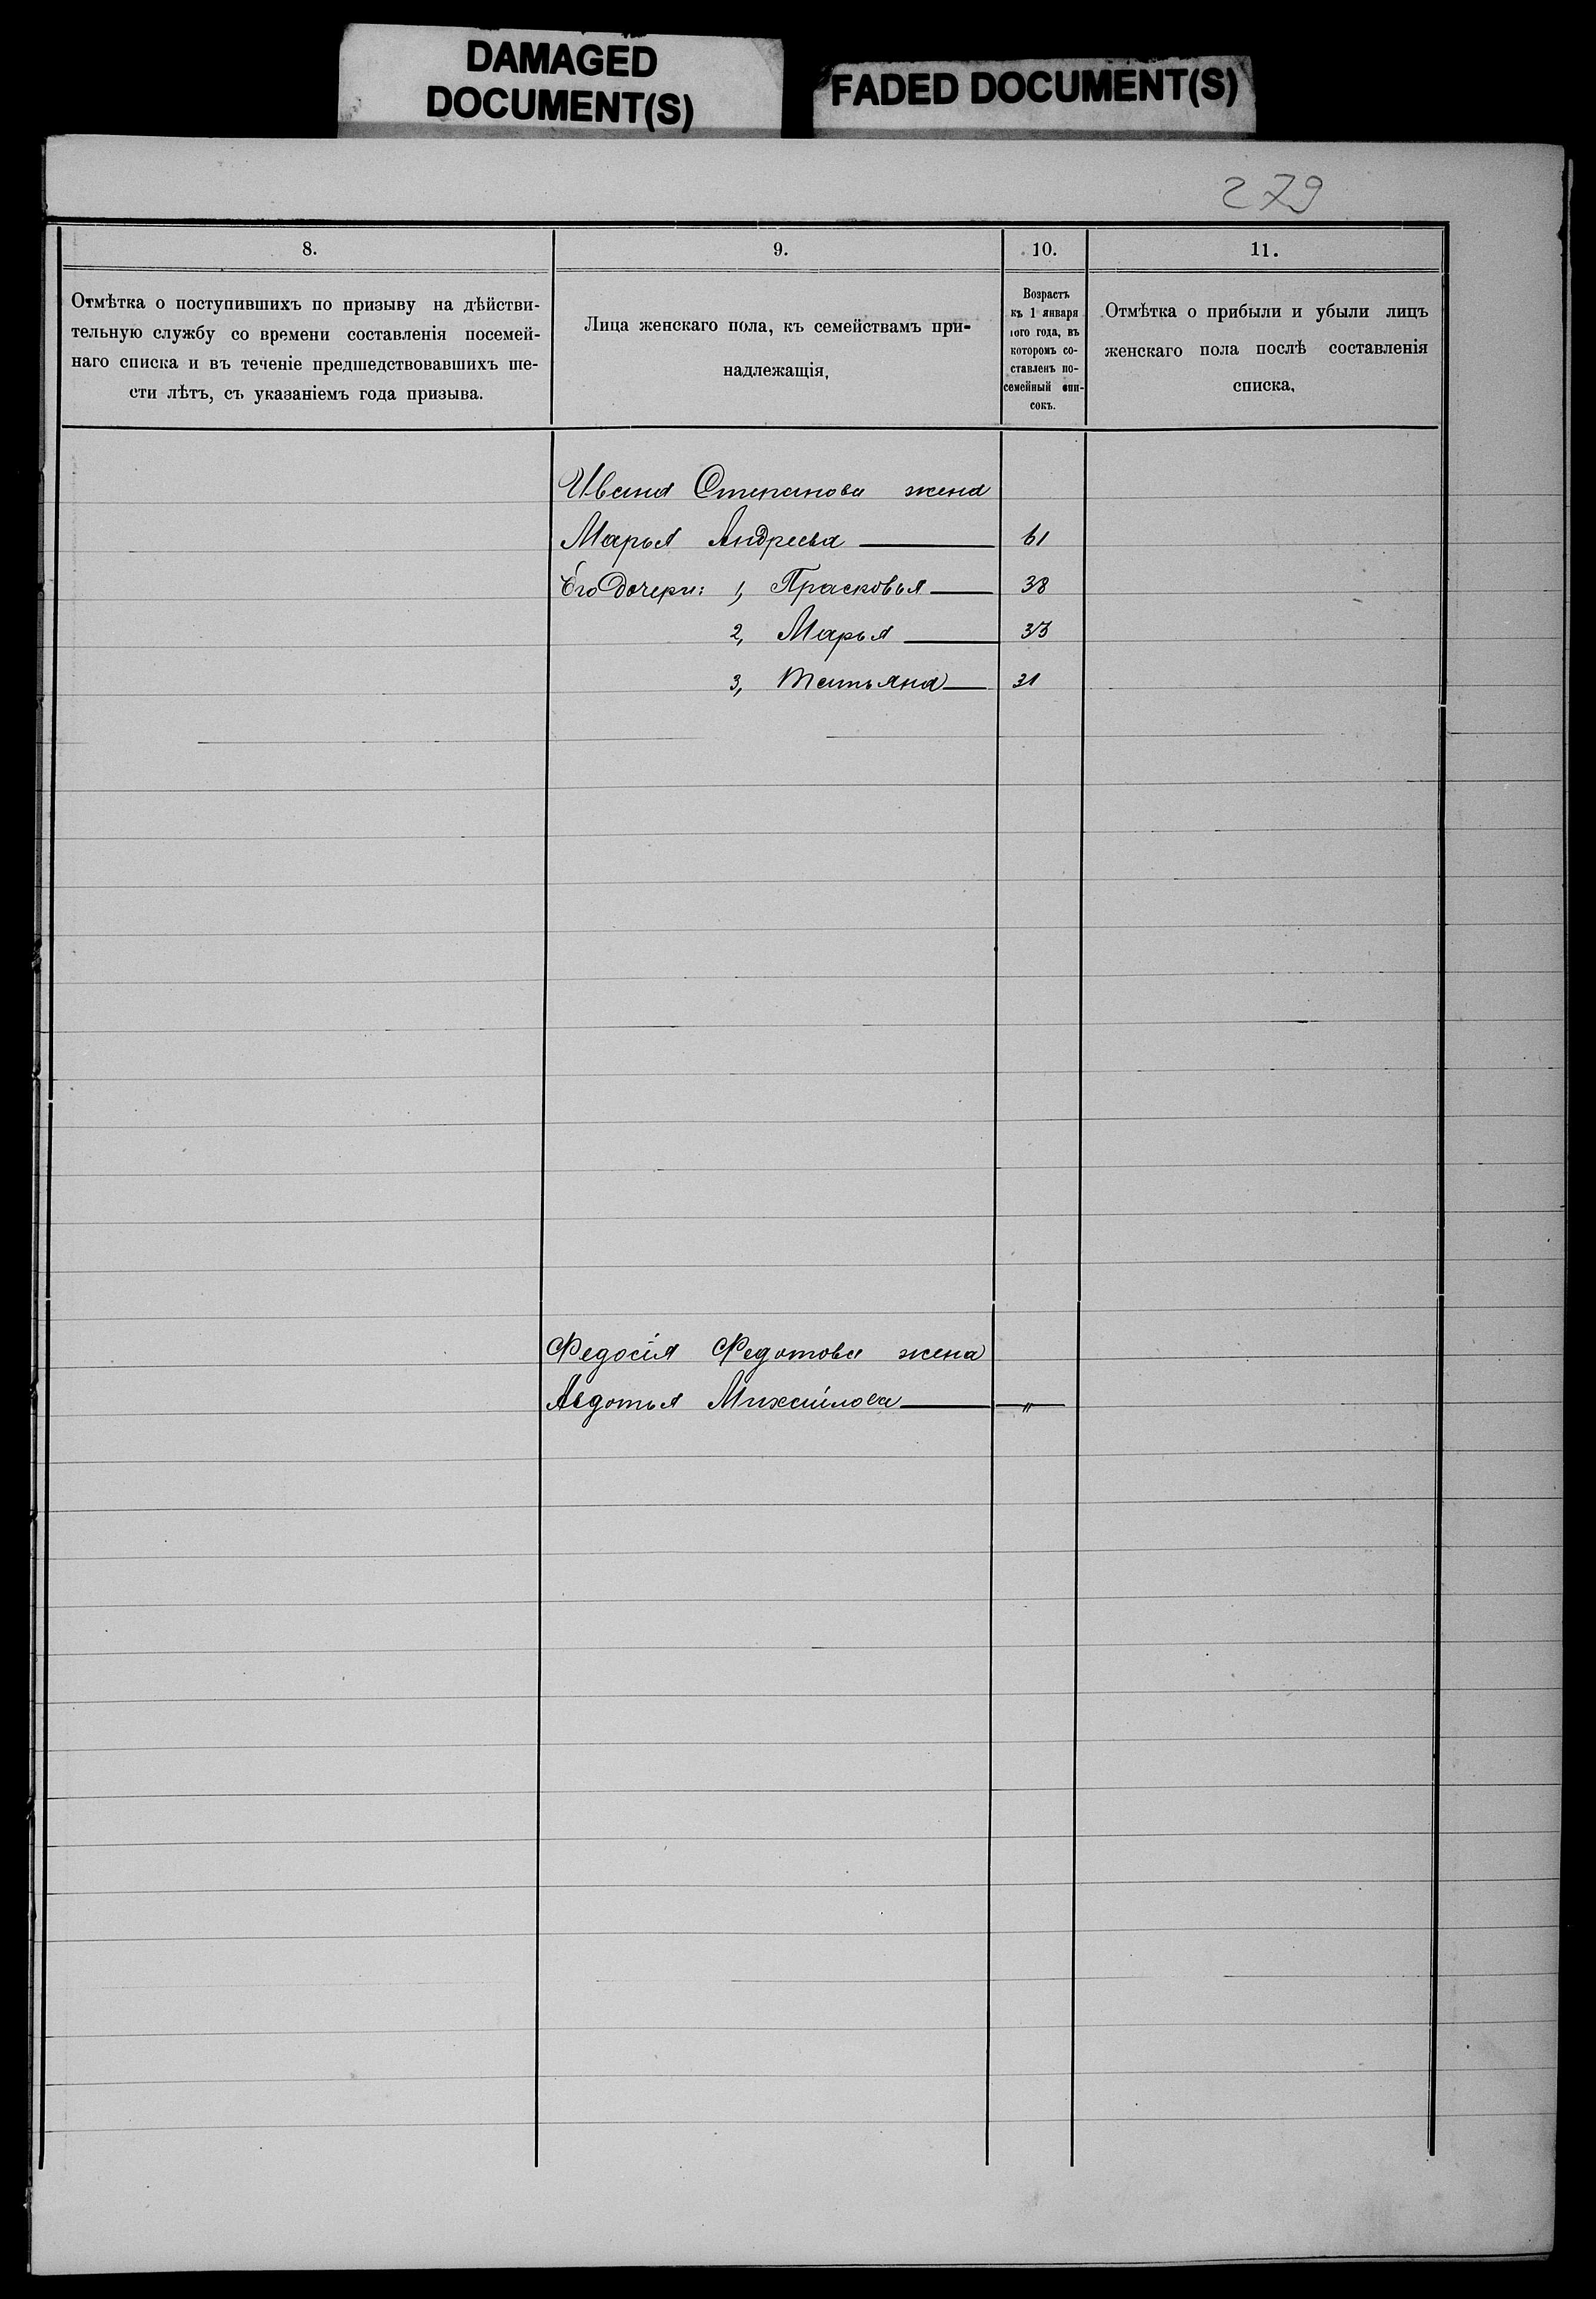 DAMAGED
DOCUMENT(S)
FADED DOCUMENT(S)
279
8.
9.
10.
11.
Отмѣтка о поступившихъ по призыву на дѣйстви-
тельную службу со времени составленія посемей-
наго списка и въ теченіе предшедствовавшихъ ше-
сти лѣтъ, съ указаніемъ года призыва.
Лица женскаго пола, къ семействамъ при-
надлежащія,
Возрастъ
къ 1 января
того года, въ
которомъ со-
ставленъ по-
семейный спи-
сокъ.
Отмѣтка о прибыли и убыли лицъ
женскаго пола послѣ составленія
списка,
Ивана Степанова жена
Марья Андреева 61
Его дочери: 1, Прасковья 38
2, Марья 33
3, Татьяна 31
Федосія Федотова жена
Авдотья Михайлова "